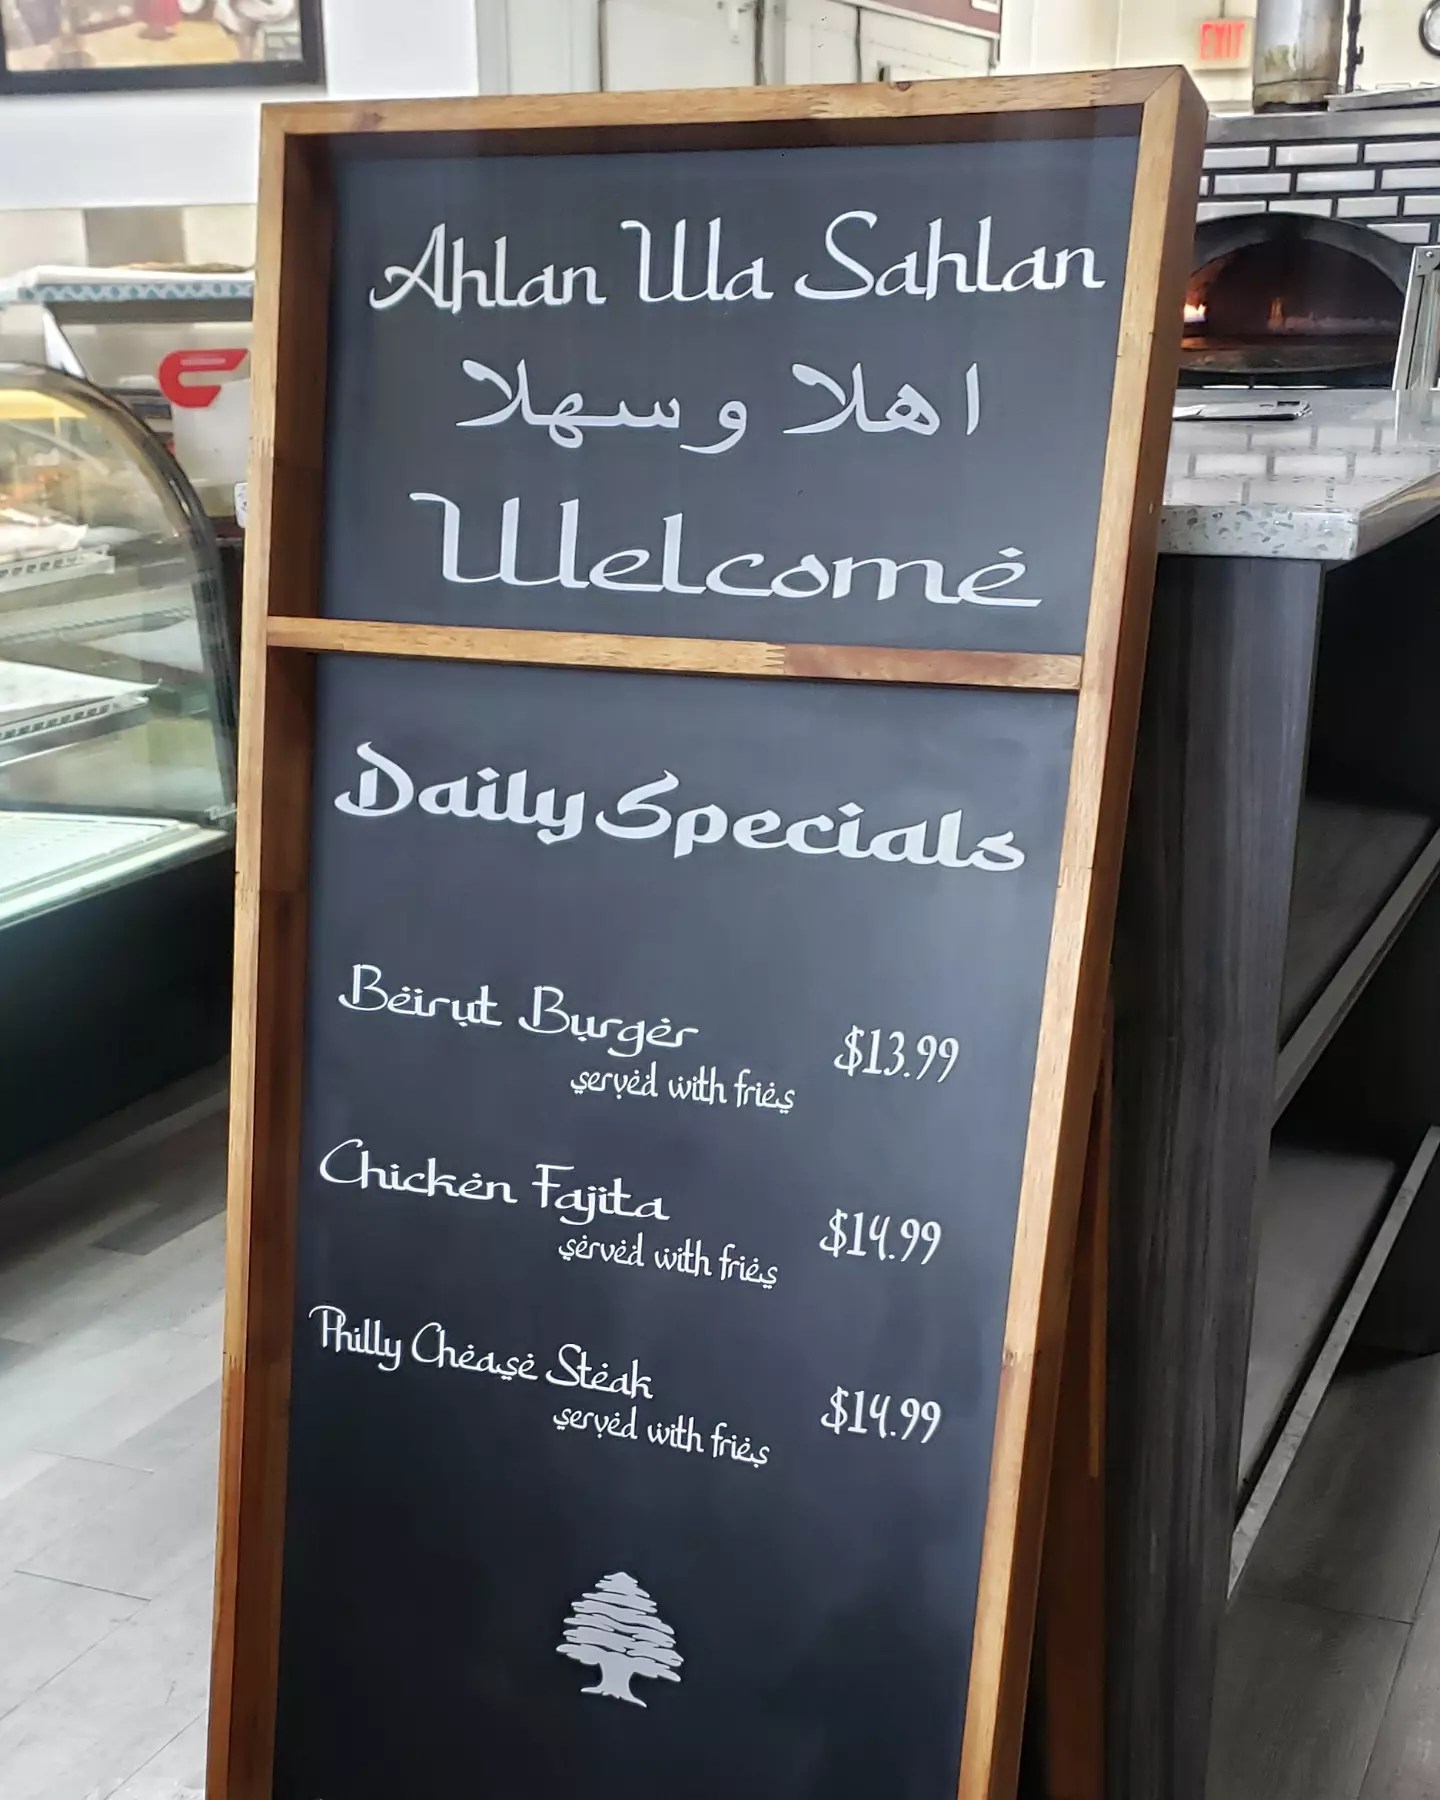 EXIT
Ahlan Wa Sahlan
اهلا و سهلا
Welcome
Daily Specials
Beirut Burger $13.99
served with fries
Chicken Fajita $14.99
served with fries
Philly Chease Steak $14.99
served with fries